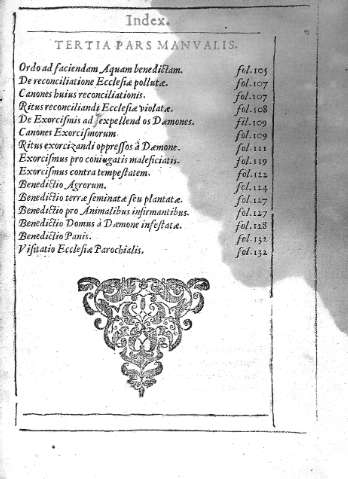 Index.
TERTIA PARS MANVALIS.
Ordo ad faciendam Aquam benedictam. fol.105
De reconciliatione Ecclesiæ pollutæ. fol.107
Canones huius reconciliationis. fol.107
Ritus reconciliandi Ecclesiæ violatæ. fol.108
De Exorcismis ad expellend os Dæmones. fol.109
Canones Exorcismorum fol.109
Ritus exorcizandi oppressos à Dæmone. fol.111
Exorcismus pro coniugatis maleficiatis. fol.119
Exorcismus contra tempestatem. fol.122
Benedictio Agrorum. fol.124
Benedictio terræ seminatæ seu plantatæ. fol.127
Benedictio pro Animalibus infirmantibus. fol.127
Benedictio Domus à Dæmone infestatæ. fol.128
Benedictio Panis. fol.132
Visitatio Ecclesiæ Parochialis. fol.132